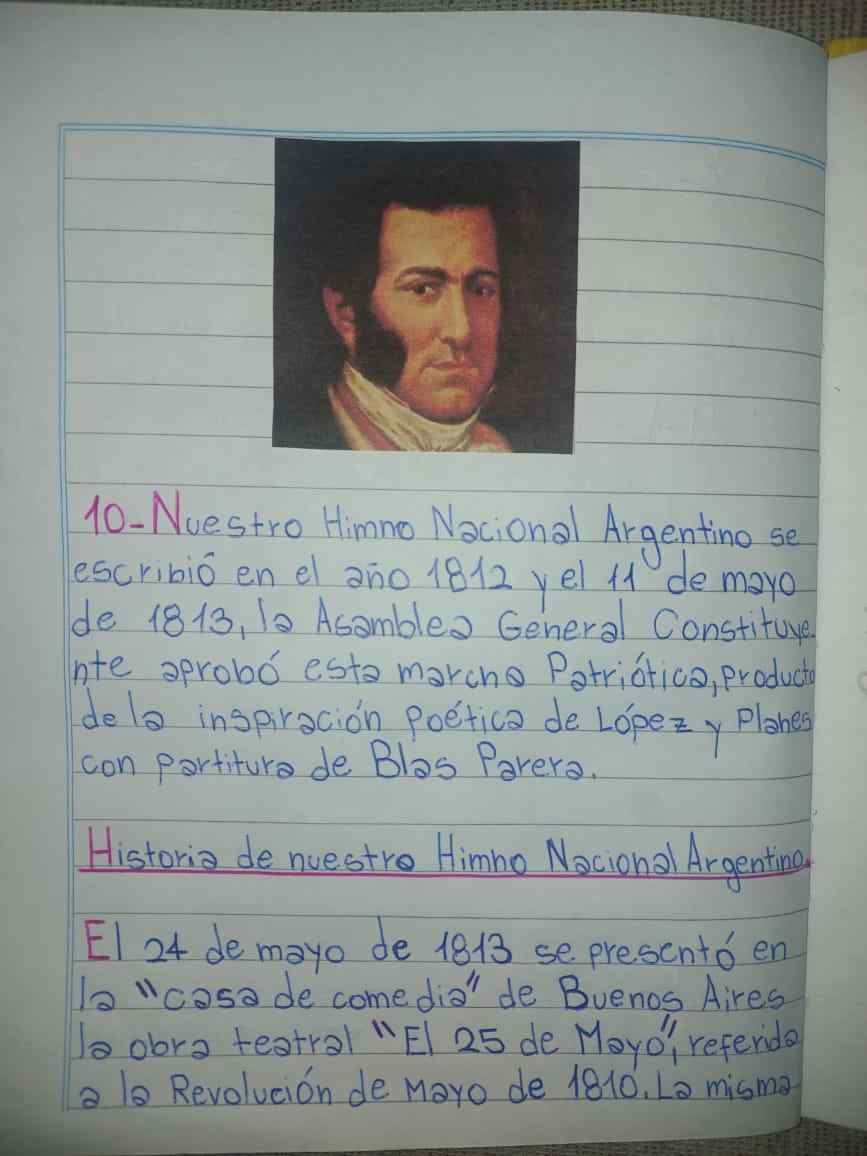 10-Nuestro Himno Nacional Argentino se
escribió en el año 1812 y el 11 de mayo
de 1813, la Asamblea General Constituye
nte aprobó esta marcha Patriótica, producto
de la inspiración poética de López y Planes
con partitura de Blas Parera.
Historia de nuestro Himno Nacional Argentino.
El 24 de mayo de 1813 se presentó en
la "casa de comedia" de Buenos Aires
la obra teatral "El 25 de Mayo", referida
a la Revolución de Mayo de 1810. La misma